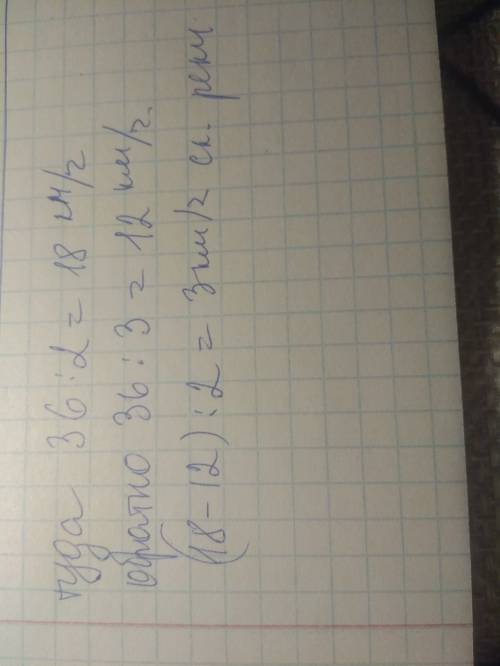 туда 36:2=18 км/ч
обратно 36:3=12 км/ч.
(18-12):2=3км/ч ск. реки